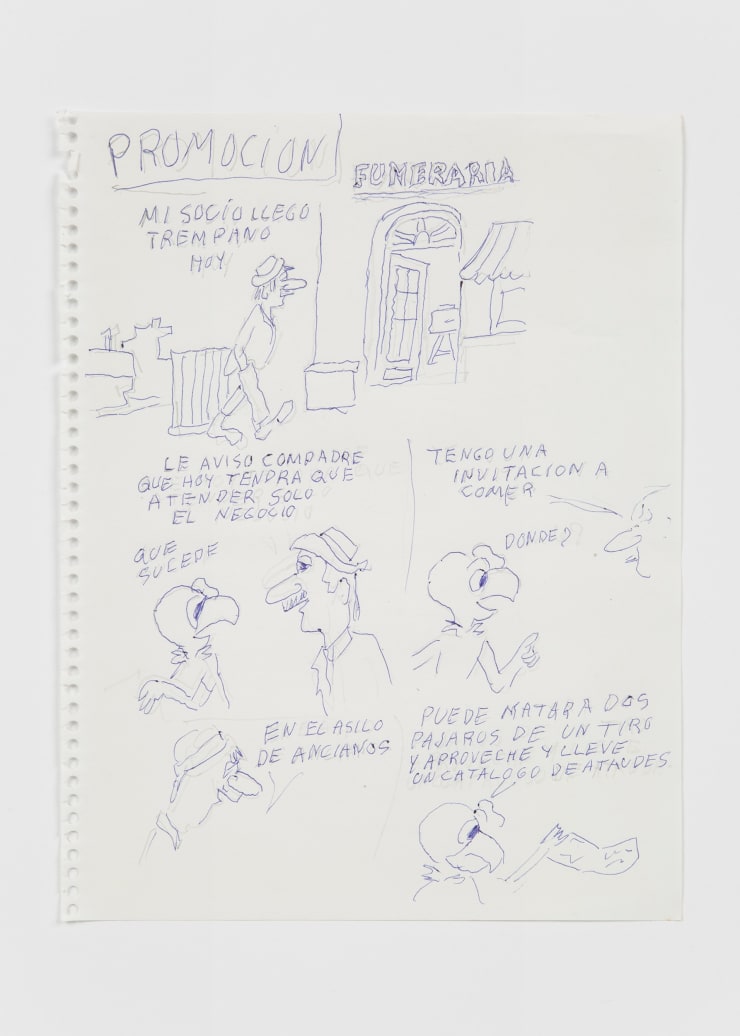 PROMOCION
FUNERARIA
MI SOCIO LLEGO
TREMPANO
HOY
LE AVISO COMPADRE
QUE HOY TENDRA QUE
ATENDER SOLO
EL NEGOCIO
QUE
SUCEDE
TENGO UNA
INVITACION A
COMER
DONDE?
EN EL ASILO
DE ANCIANOS
PUEDE MATAR A DOS
PAJAROS DE UN TIRO
Y APROVECHE Y LLEVE
UN CATALOGO DE ATAUDES